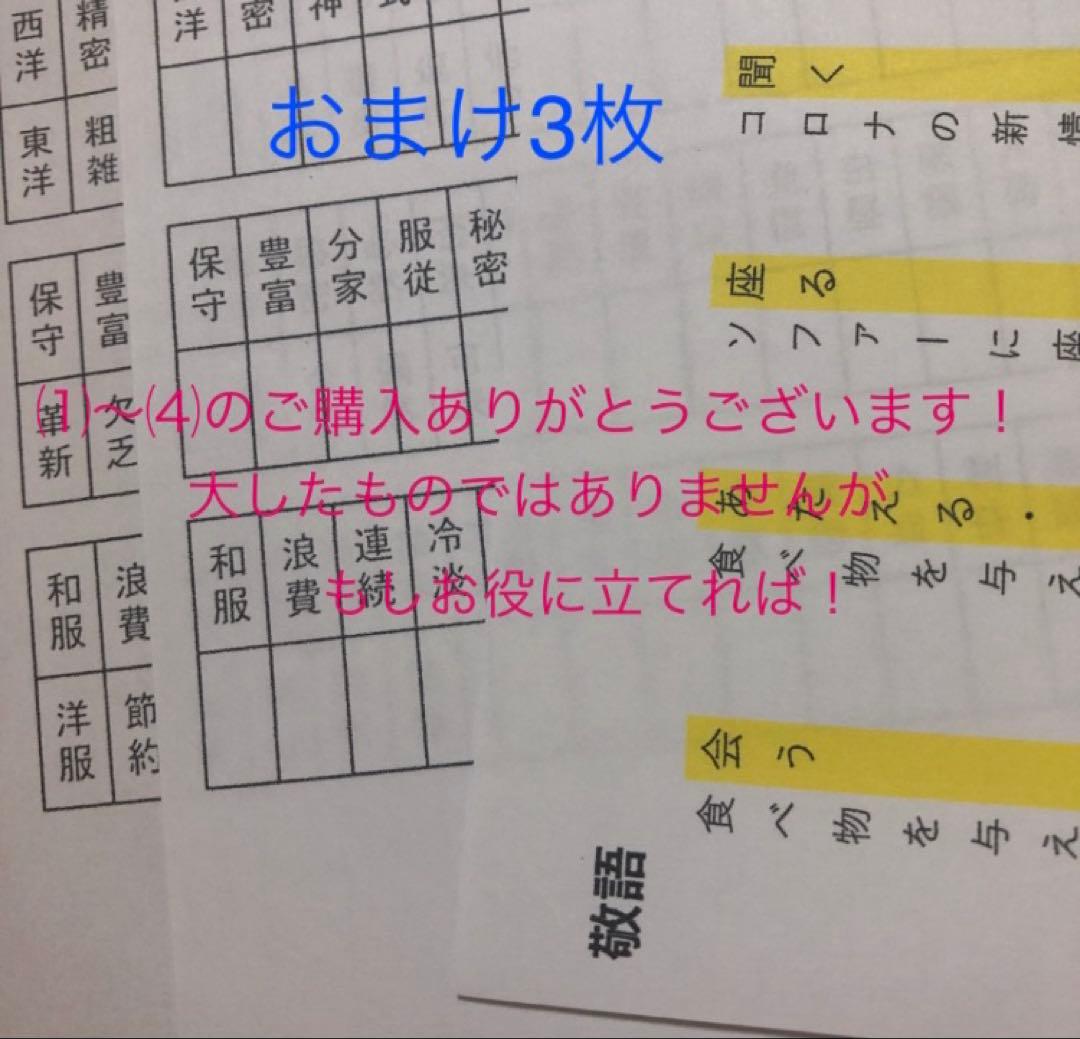 おまけ3枚
⑴〜⑷のご購入ありがとうございます！
大したものではありませんが
もしお役に立てれば！
西洋 精密
東洋 粗雑
保守 豊富
革新 欠乏
和服 浪費
洋服 節約
洋 密 神 式
保守 豊富 分家 服従 秘密
和服 浪費 連続 冷淡
敬語
聞く
コロナの新情
座る
ソファーに座
あたえる・
食べ物を与え
会う
食べ物を与え